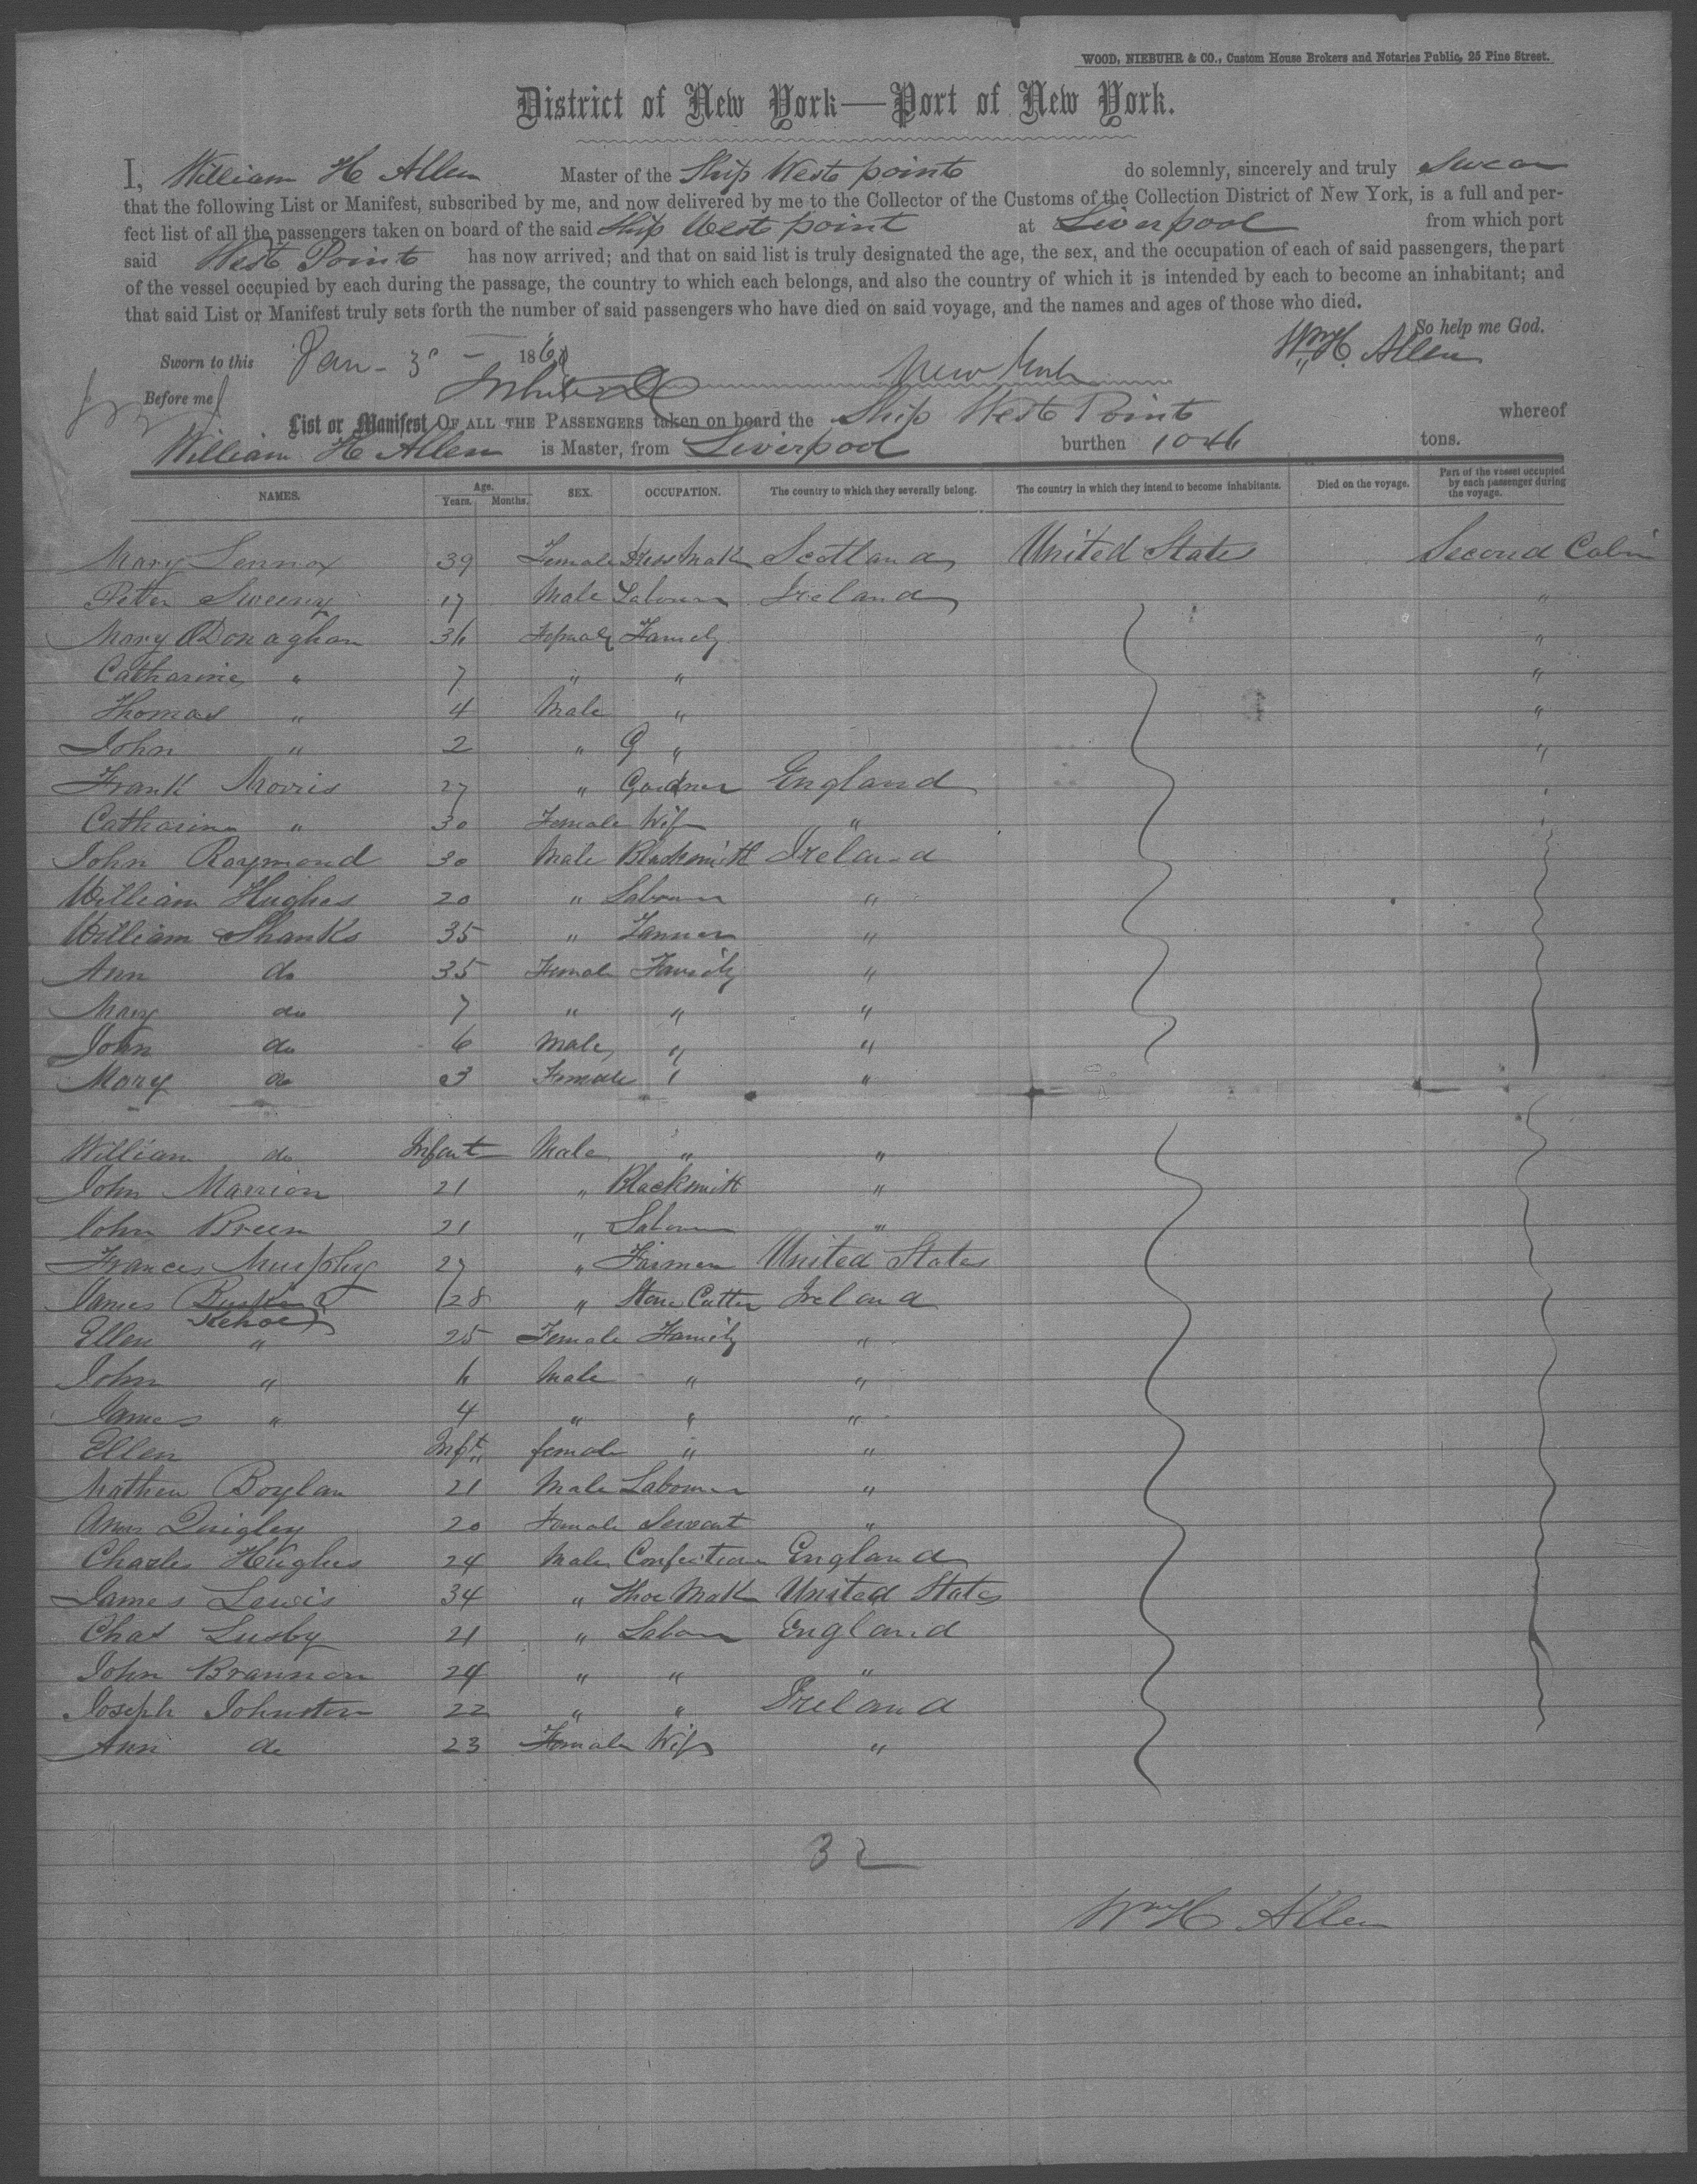 WOOD, NIEBUHR & CO., Custom House Brokers and Notaries Public, 25 Pine Street.
District of New York—Port of New York.
I, William H Allen Master of the Ship West point do solemnly, sincerely and truly Swear
that the following List or Manifest, subscribed by me, and now delivered by me to the Collector of the Customs of the Collection District of New York, is a full and per-
fect list of all the passengers taken on board of the said Ship West point at Liverpool from which port
said West Point has now arrived; and that on said list is truly designated the age, the sex, and the occupation of each of said passengers, the part
of the vessel occupied by each during the passage, the country to which each belongs, and also the country of which it is intended by each to become an inhabitant; and
that said List or Manifest truly sets forth the number of said passengers who have died on said voyage, and the names and ages of those who died.
So help me God.
Sworn to this Jan - 3 - 186 Wm H. Allen
Before me New York
List or Manifest OF ALL THE PASSENGERS taken on board the Ship West Point whereof
William H Allen is Master, from Liverpool burthen 1046 tons.
NAMES. Age. Years. Months. SEX. OCCUPATION. The country to which they severally belong. The country in which they intend to become inhabitants. Died on the voyage. Part of the vessel occupied by each passenger during the voyage.
Mary Lennox 39 Female Dress Maker Scotland United States Second Cabin
Peter Sweeny 17 Male Labourer Ireland "
Mary O'Donaghan 36 Female Family "
Catharine " 7 " " "
Thomas " 4 Male " "
John " 2 " G " "
Frank Morris 27 " Gardner England "
Catharine " 30 Female Wife " "
John Raymond 30 Male Blacksmith Ireland
William Hughes 20 " Labourer "
William Shanks 35 " Tanner "
Ann do 35 Female Family "
Mary do 7 " " "
John do 6 Male " "
Mary do 3 Female " "
William do Infant Male " "
John Marrion 21 " Blacksmith "
John Breen 21 " Labourer "
Frances Murphy 27 " Farmer United States
James Kehoe 28 " Stone Cutter Ireland
Ellen " 25 Female Family "
John " 6 Male " "
James " 4 " " "
Ellen Inft " female " "
Mathew Boylan 21 Male Labourer "
Ann Quigley 20 Female Servant "
Charles Hughes 24 Male Confectioner England
James Lewis 34 " Shoe Maker United States
Chas Lusby 21 " Labour England
John Brannon 24 " " "
Joseph Johnston 22 " " Ireland
Ann do 23 Female Wife "
32
Wm H Allen